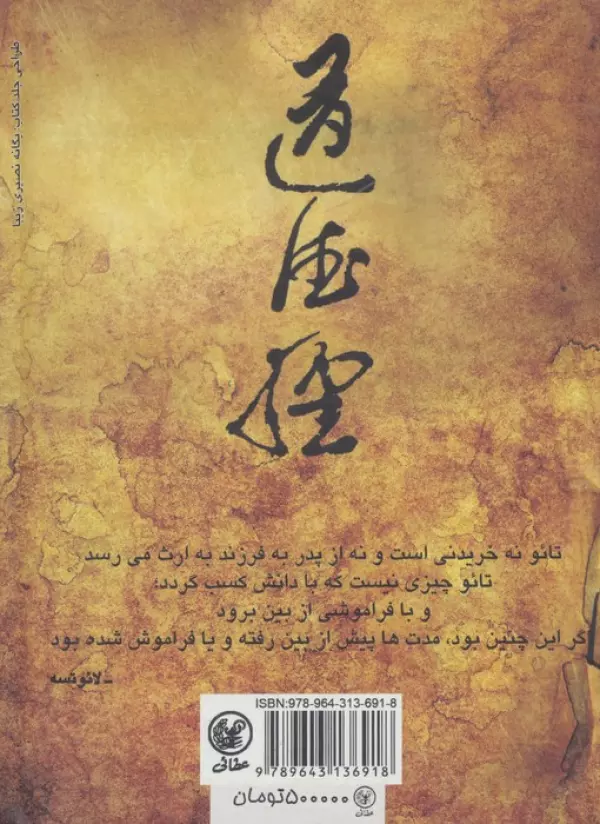 طراحی جلد کتاب: یگانه نصیری زیبا
道
德
經
تائو نه خریدنی است و نه از پدر به فرزند به ارث می رسد
تائو چیزی نیست که با دانش کسب گردد؛
و با فراموشی از بین برود
گر این چنین بود، مدت ها پیش از بین رفته و یا فراموش شده بود
ـ لائوتسه
ISBN:978-964-313-691-8
عطائی
9 789643 136918
۵۰۰۰۰۰ تومان
عطائی